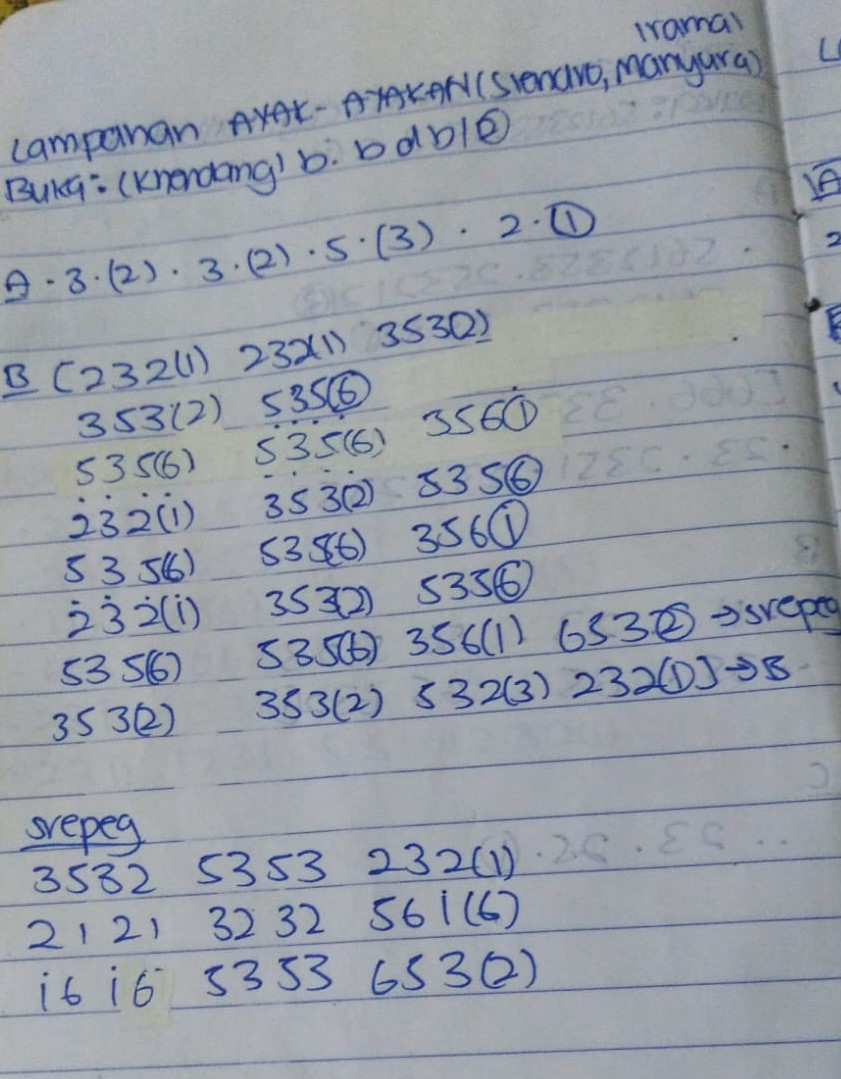 Irama 1
Lampahan AYAK-AYAKAN (Slendro, Manyura)
Buka: (Khendang) b. b d b 1 (2)
A · 3 · (2) · 3 · (2) · 5 · (3) · 2 · (1)
B [232(1) 232(1) 353(2)
353(2) 535(6)
535(6) 5̇3̇5̇(6) 356(i̇)
2̇3̇2̇(i̇) 3̇5̇3̇(2̇) 535(6)
535(6) 535(6) 356(i̇)
2̇3̇2̇(i̇) 353(2) 535(6)
535(6) 535(6) 356(1) 653(2) → srepeg
353(2) 353(2) 532(3) 232(1)] → B
srepeg
3532 5353 232(1)
2121 3232 56i̇(6)
i̇6i̇6 5353 653(2)